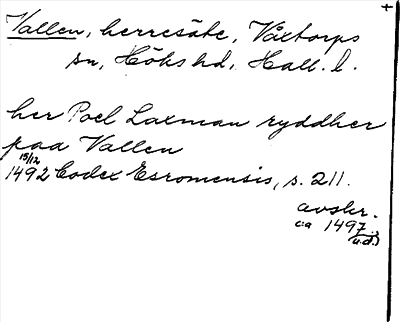 +
Vallen, herresäte, Våxtorps
sn, Höks hd, Hall. l.
her Poel Laxman ryddher
paa Vallen
15/12
1492 Codex Esromensis, s. 211.
avskr.
ca 1497.
(u.d.)